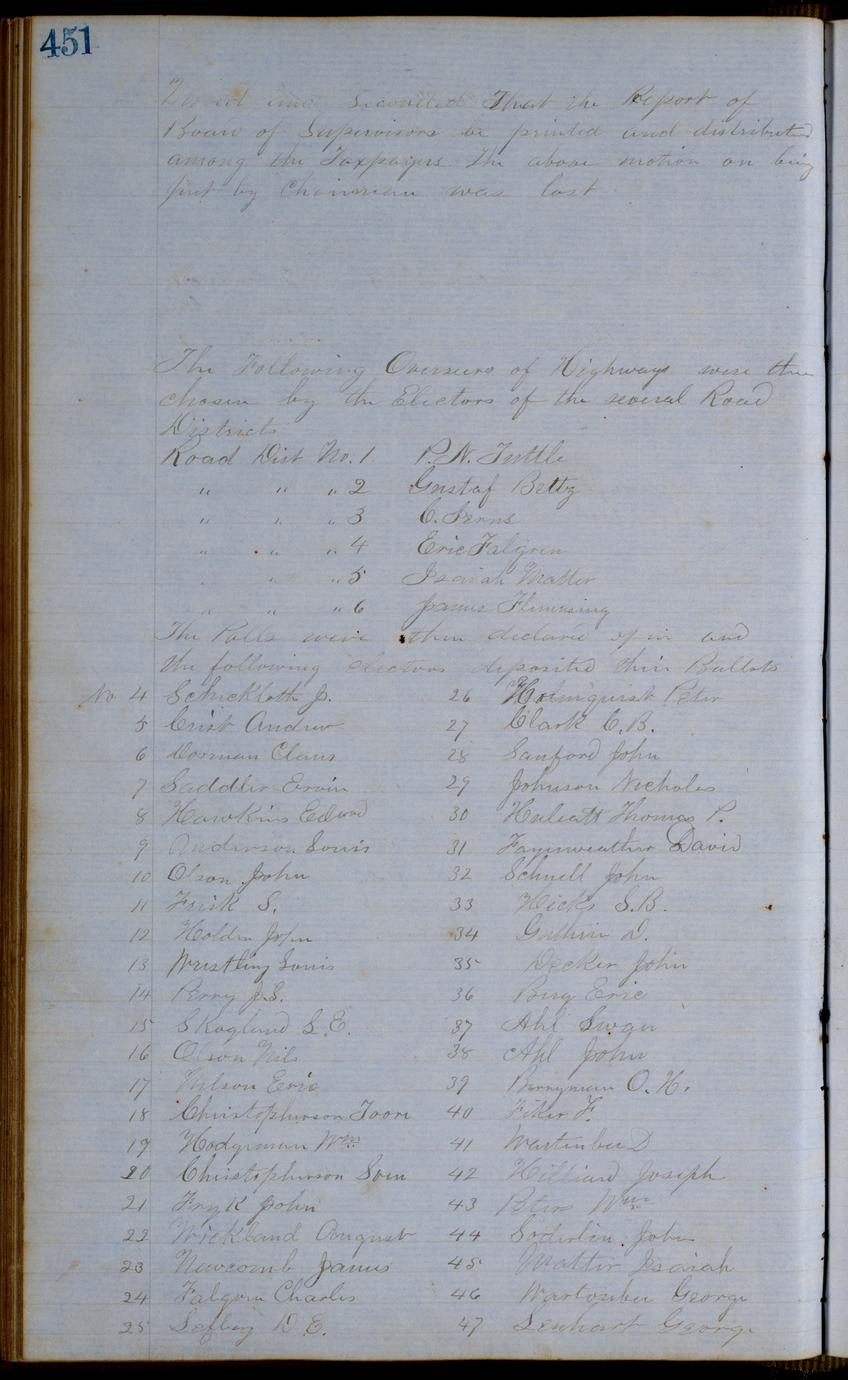 451
and seconded That the Report of
Board of Supervisors be printed and distributed
among the Taxpayers The above motion on being
put by Chairman was lost
The Following Overseers of Highways were then
chosen by the Electors of the several Road
Districts
Road Dist No. 1 P. N. Tuttle
" " " 2 Gustaf Beltz
" " " 3 C.
" " " 4 Eric Falgrin
" " " 5 Isaiah Matter
" " " 6 James Flemming
The Polls were then declared open and
the following electors deposited their Ballots
No 4 Schickloth J. 26 Holmquist Peter
5 Crist Andrew 27 Clark C. B.
6 Dorman Claus 28 Sanford John
7 Saddler Ervin 29 Johnson Nicholas
8 Hawkins Edwd 30 Thomas P.
9 Anderson Louis 31 David
10 Olson John 32 Schnell John
11 Frisk S. 33 Hicks S. B.
12 Holden John 34 D.
13 Louis 35 Decker John
14 Perry J. S. 36 Berg Eric
15 Skoglund S. E. 37 Ahl
16 Olson Nils 38 Ahl John
17 Nilson Eric 39 Berryman O. H.
18 Christopherson 40 F.
19 Hodgman Wm 41 D
20 Christopherson Sven 42 Hilliard Joseph
21 Fryk John 43 Peters Wm
22 Wickland August 44 Soderlin John
23 Newcomb James 45 Matter Isaiah
24 Falgrin Charles 46 George
25 D. E. 47 Lenhart George